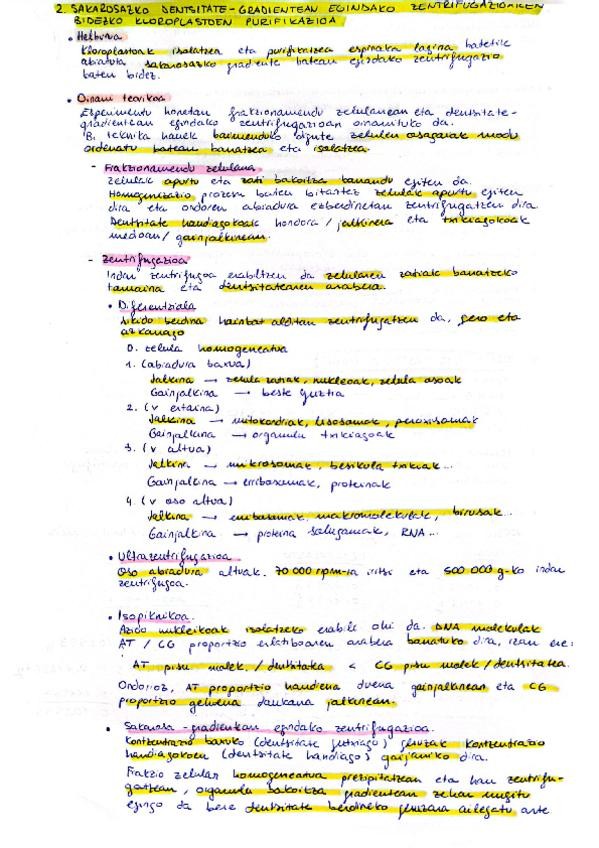 2. SAKAROSAZKO DENTSITATE-GRADIENTEAN EGINDAKO ZENTRIFUGAZIOAREN
BIDEZKO KLOROPLASTOEN PURIFIKAZIOA
• Helburua
Kloroplastoak isolatzea eta purifikatzea espinaka lagina batetik
abiatuta sakarosazko gradiente batean egindako zentrifugazio
baten bidez.
• Oinarri teorikoa
Esperimentu honetan frakzionamendu zelularrean eta dentsitate-
gradientean egindako zentrifugazioan oinarrituko da.
Bi teknika hauek baimenduko digute zelulen osagaiak modu
ordenatu batean banatzea eta isolatzea.
- Frakzionamendu zelularra
Zelulak apurtu eta zati bakoitza banandu egiten da.
Homogenizazio prozesu baten bitartez zelulak apurtu egiten
dira eta ondoren abiadura ezberdinetan zentrifugatzen dira.
Dentsitate handiagokoak hondora / jalkinera eta txikiagokoak
medioan / gainjalkinean.
- Zentrifugazioa
Indar zentrifugoa erabiltzen da zelularen zatiak banatzeko
tamaina eta dentsitatearen arabera.
• Diferentziala
Likido berdina hainbat alditan zentrifugatzen da, gero eta
azkarrago
0. zelula homogeneatua
1. (abiadura baxua)
Jalkina → zelula zatiak, nukleoak, zelula osoak
Gainjalkina → beste guztia
2. (v ertaina)
Jalkina → mitokondriak, lisosomak, peroxisomak
Gainjalkina → organulu txikiagoak
3. (v altua)
Jalkina → mikrosomak, besikula txikiak...
Gainjalkina → erribosomak, proteinak
4. (v oso altua)
Jalkina → erribosomak, makromolekulak, birusak...
Gainjalkina → proteina solugarriak, RNA...
• Ultrazentrifugazioa
Oso abiadura altuak. 70 000 rpm-ra iritsi eta 500 000 g-ko indar
zentrifugoa.
• Isopiknikoa.
Azido nukleikoak isolatzeko erabili ohi da. DNA molekulak
AT / CG proportzio erlatiboaren arabera banatuko dira, izan ere:
AT pisu molek. / dentsitatea < CG pisu molek / dentsitatea.
Ondorioz, AT proportzio handiena duena gainjalkinean eta CG
proportzio gehiena daukana jalkinean.
• Sakarosa-gradientean egindako zentrifugazioa.
Kontzentrazio baxuko (dentsitate txikiago) geruzak kontzentrazio
handiagokoen (dentsitate handiago) gainjarriko dira.
Frakzio zelular homogeneatua prezipitatzean eta hau zentrifu-
gatzean, organulu bakoitza gradientean zehar mugitu
egingo da bere dentsitate berdineko geruzara ailegatu arte